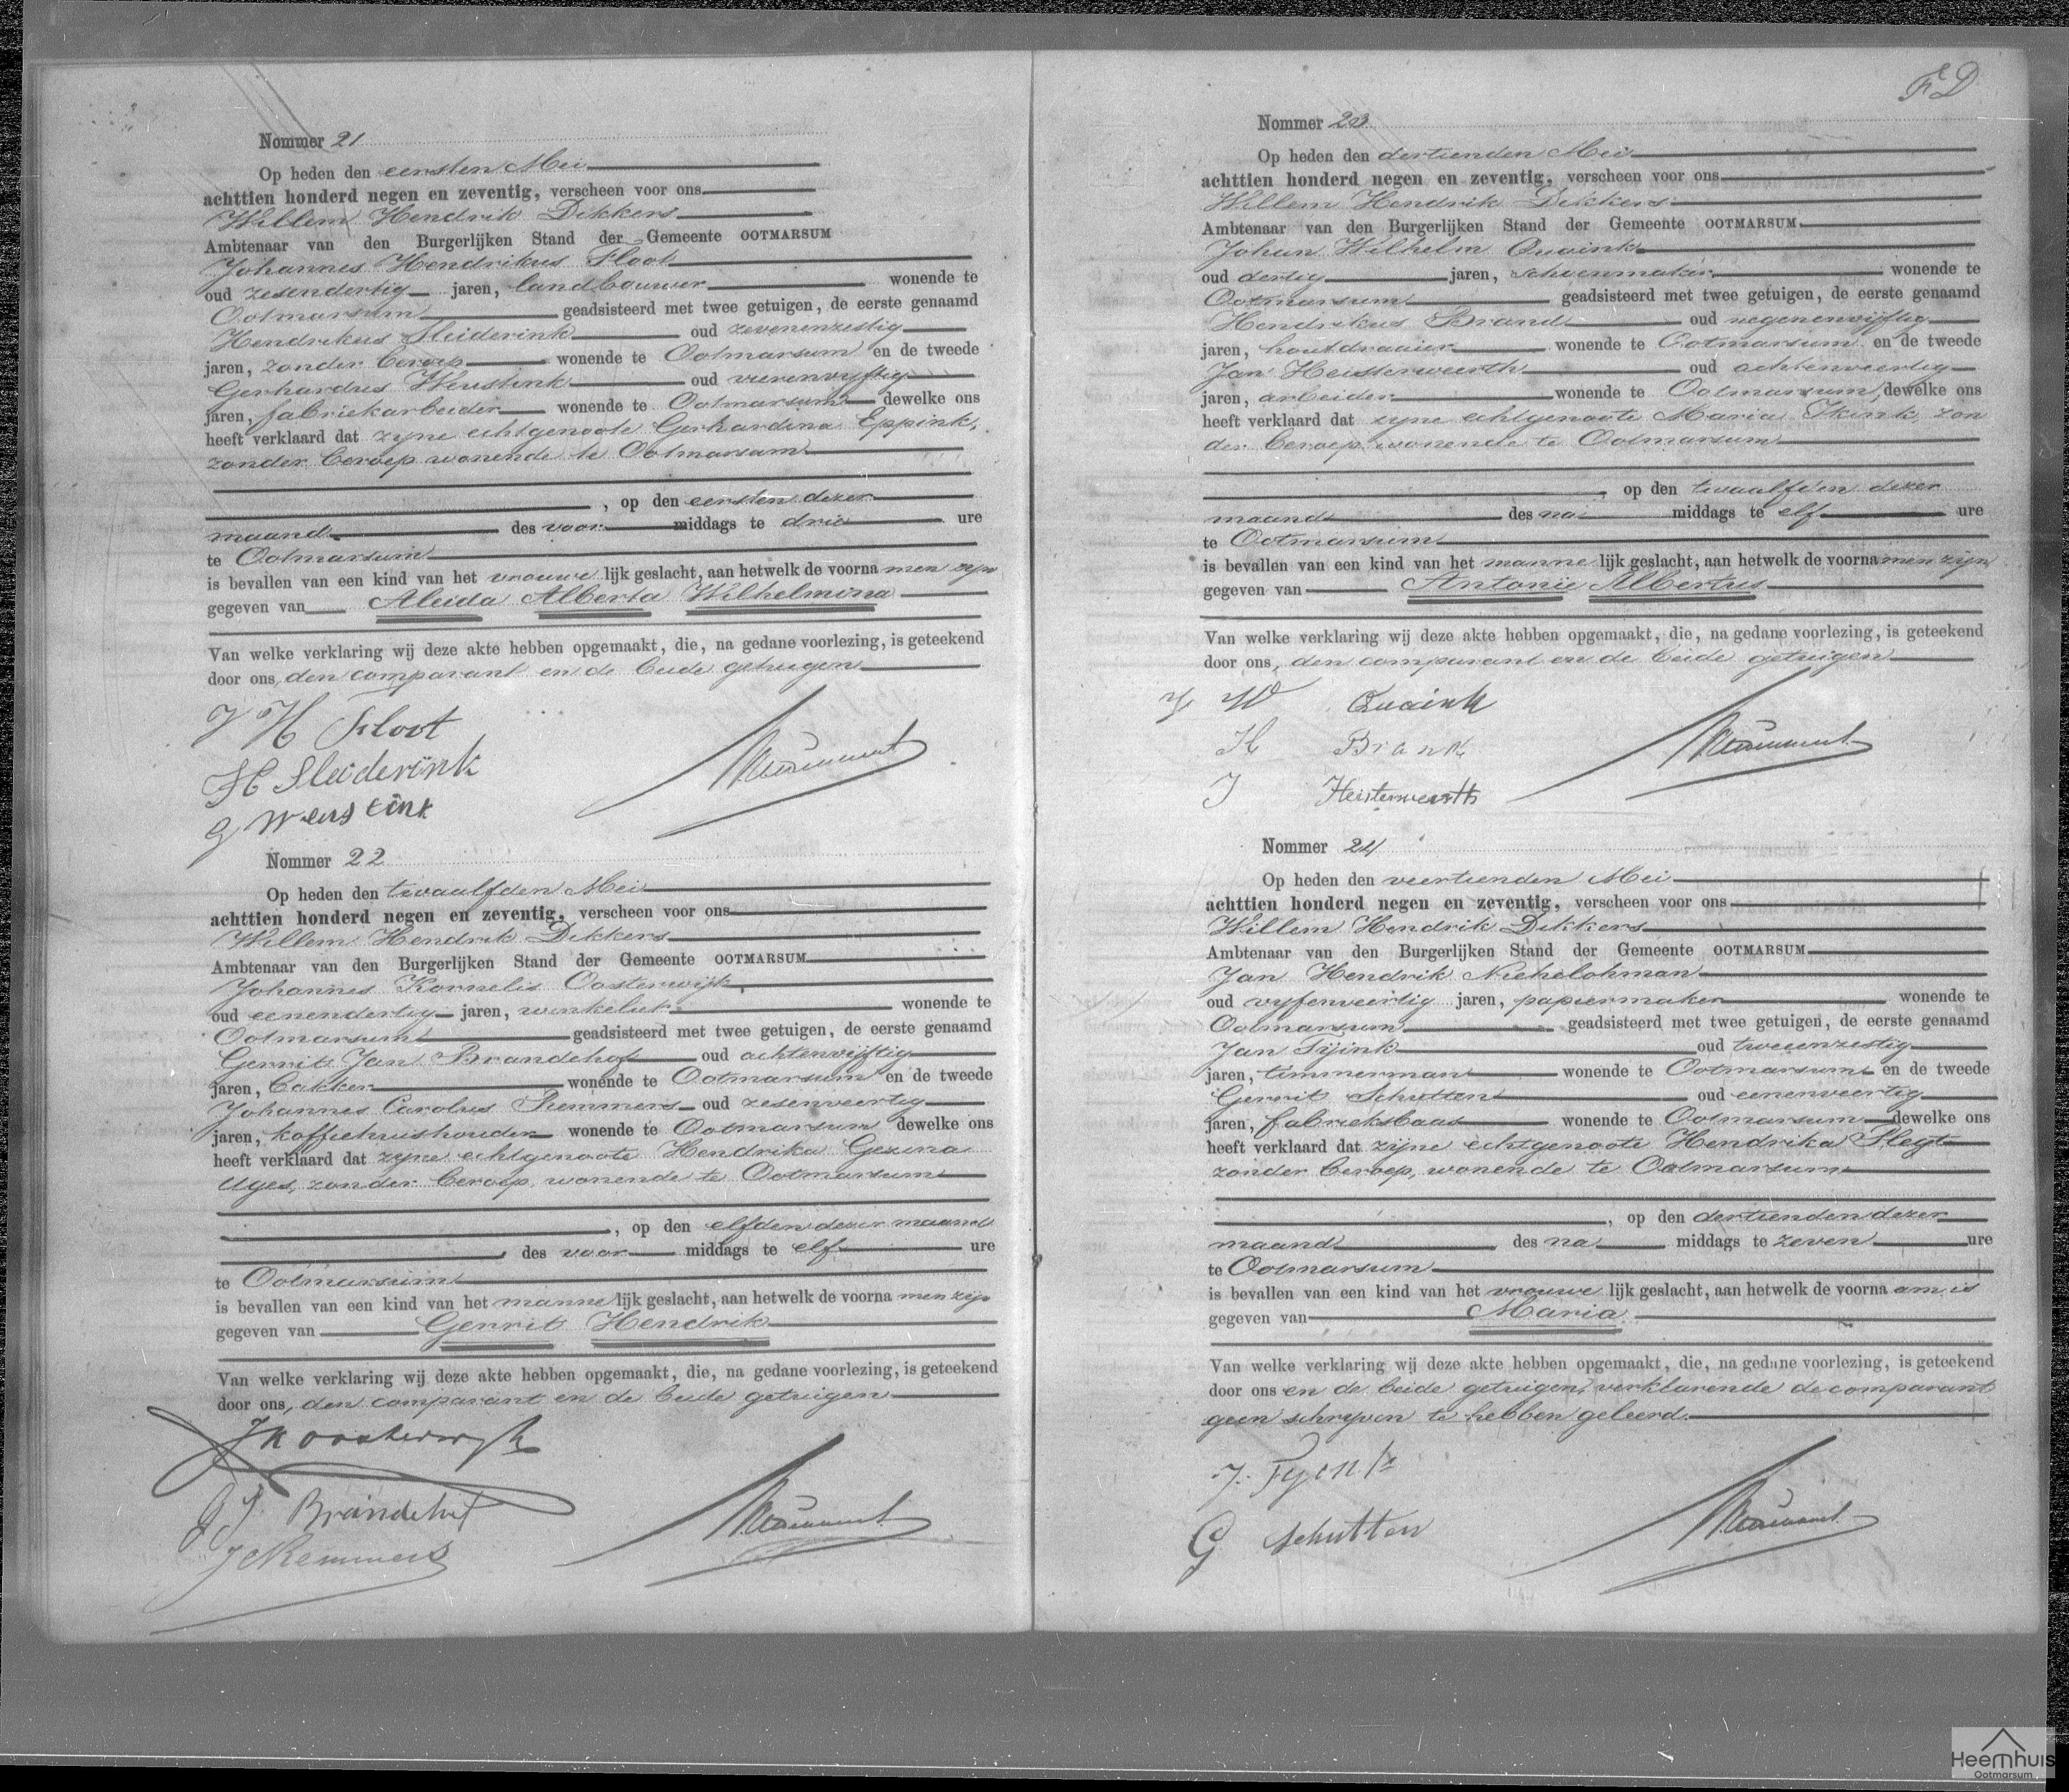 Nommer 21
Op heden den eersten Mei
achttien honderd negen en zeventig, verscheen voor ons
Willem Hendrik Dikkers
Ambtenaar van den Burgerlijken Stand der Gemeente OOTMARSUM
Johannes Hendrikus Sloot
oud zesendertig jaren, landbouwer wonende te
Ootmarsum geadsisteerd met twee getuigen, de eerste genaamd
Hendrikus Sleiderink oud zevenenzestig
jaren, zonder beroep wonende te Ootmarsum en de tweede
Gerhardus Weustink oud vierenvyftig
jaren, fabriekarbeider wonende te Ootmarsum dewelke ons
heeft verklaard dat zyne echtgenoote Gerhardina Eppink,
zonder beroep wonende te Ootmarsum
, op den eersten dezer
maand des voor middags te drie ure
te Ootmarsum
is bevallen van een kind van het vrouwe lijk geslacht, aan hetwelk de voorna men zyn
gegeven van Aleida Alberta Wilhelmina
Van welke verklaring wij deze akte hebben opgemaakt, die, na gedane voorlezing, is geteekend
door ons, den comparant en de beide getuigen
J H Sloot
H Sleiderink
G Weustink
Nommer 22
Op heden den twaalfden Mei
achttien honderd negen en zeventig, verscheen voor ons
Willem Hendrik Dikkers
Ambtenaar van den Burgerlijken Stand der Gemeente OOTMARSUM
Johannes Kornelis Oosterwijk,
oud eenendertig jaren, winkelier wonende te
Ootmarsum geadsisteerd met twee getuigen, de eerste genaamd
Gerrit Jan Brandehof oud achtenvijftig
jaren, bakker wonende te Ootmarsum en de tweede
Johannes Carolus Remmers oud zesenveertig
jaren, koffiehuishouder wonende te Ootmarsum dewelke ons
heeft verklaard dat zyne echtgenoote Hendrika Gezina
Uges, zonder beroep, wonende te Ootmarsum
, op den elfden dezer maand
des voor middags te elf ure
te Ootmarsum
is bevallen van een kind van het manne lijk geslacht, aan hetwelk de voorna men zyn
gegeven van Gerrit Hendrik
Van welke verklaring wij deze akte hebben opgemaakt, die, na gedane voorlezing, is geteekend
door ons, den comparant en de beide getuigen
J K Oosterwyk
G J Brandehof
J C Remmers
F D
Nommer 23
Op heden den dertienden Mei
achttien honderd negen en zeventig, verscheen voor ons
Willem Hendrik Dikkers
Ambtenaar van den Burgerlijken Stand der Gemeente OOTMARSUM
Johan Wilhelm Quaink
oud dertig jaren, schoenmaker wonende te
Ootmarsum geadsisteerd met twee getuigen, de eerste genaamd
Hendrikus Brand oud negenenvijftig
jaren, houtdraaier wonende te Ootmarsum en de tweede
Jan Heisterweerth oud achtenveertig
jaren, arbeider wonende te Ootmarsum, dewelke ons
heeft verklaard dat zyne echtgenoote Maria Ikink, zon
der beroep wonende te Ootmarsum
, op den twaalfden dezer
maand des na middags te elf ure
te Ootmarsum
is bevallen van een kind van het manne lijk geslacht, aan hetwelk de voorna men zijn
gegeven van Antonie Albertus
Van welke verklaring wij deze akte hebben opgemaakt, die, na gedane voorlezing, is geteekend
door ons, den comparant en de beide getuigen
J W Quaink
H Brand
J Heisterweerth
Nommer 24
Op heden den veertienden Mei
achttien honderd negen en zeventig, verscheen voor ons
Willem Hendrik Dikkers
Ambtenaar van den Burgerlijken Stand der Gemeente OOTMARSUM
Jan Hendrik Niehelohman
oud vyfenveertig jaren, papiermaker wonende te
Ootmarsum geadsisteerd met twee getuigen, de eerste genaamd
Jan Tijink oud tweeenzestig
jaren, timmerman wonende te Ootmarsum en de tweede
Gerrit Schutten oud eenenveertig
jaren, fabrieksbaas wonende te Ootmarsum dewelke ons
heeft verklaard dat zijne echtgenoote Hendrika Slegt
zonder beroep, wonende te Ootmarsum
, op den dertienden dezer
maand des na middags te zeven ure
te Ootmarsum
is bevallen van een kind van het vrouwe lijk geslacht, aan hetwelk de voorna am is
gegeven van Maria
Van welke verklaring wij deze akte hebben opgemaakt, die, na gedane voorlezing, is geteekend
door ons en de beide getuigen, verklarende de comparant
geen schryven te hebben geleerd.
J. Tyink
G Schutten
Heemhuis
Ootmarsum